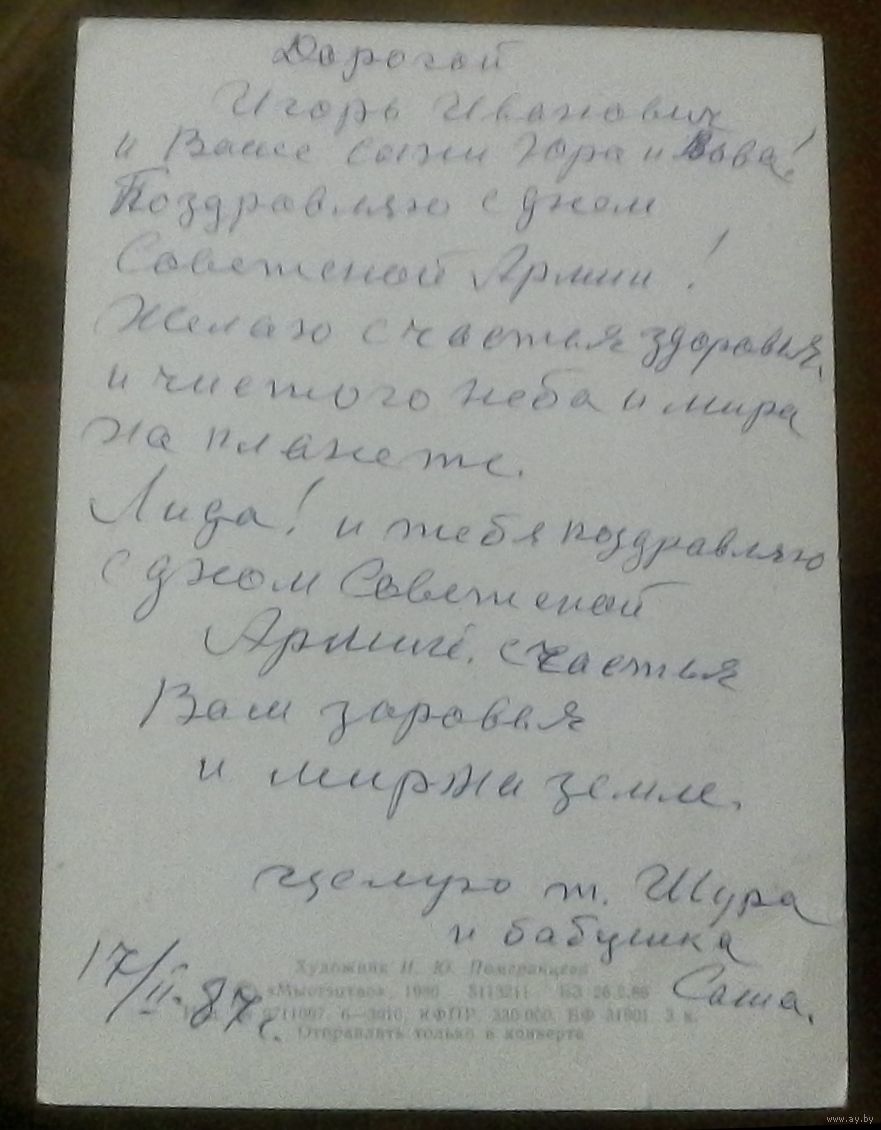 Дорогой
Игорь Иванович
и Ваше сыни Юра и Вова!
Поздравляю с днем
Советской Армии!
Желаю счастья здоровья,
и чистого неба и мира
на планете.
Лида! и тебя поздравляю
с дном Советской
Армией. счастья
Вам здоровья
и мир на земле.
целую т. Шура
и бабушка
Саша.
17/II-87г.
Художник И. Ю. Померанцева
«Мистэцтво», 1986
Отправлять только в конверте
www.ay.by